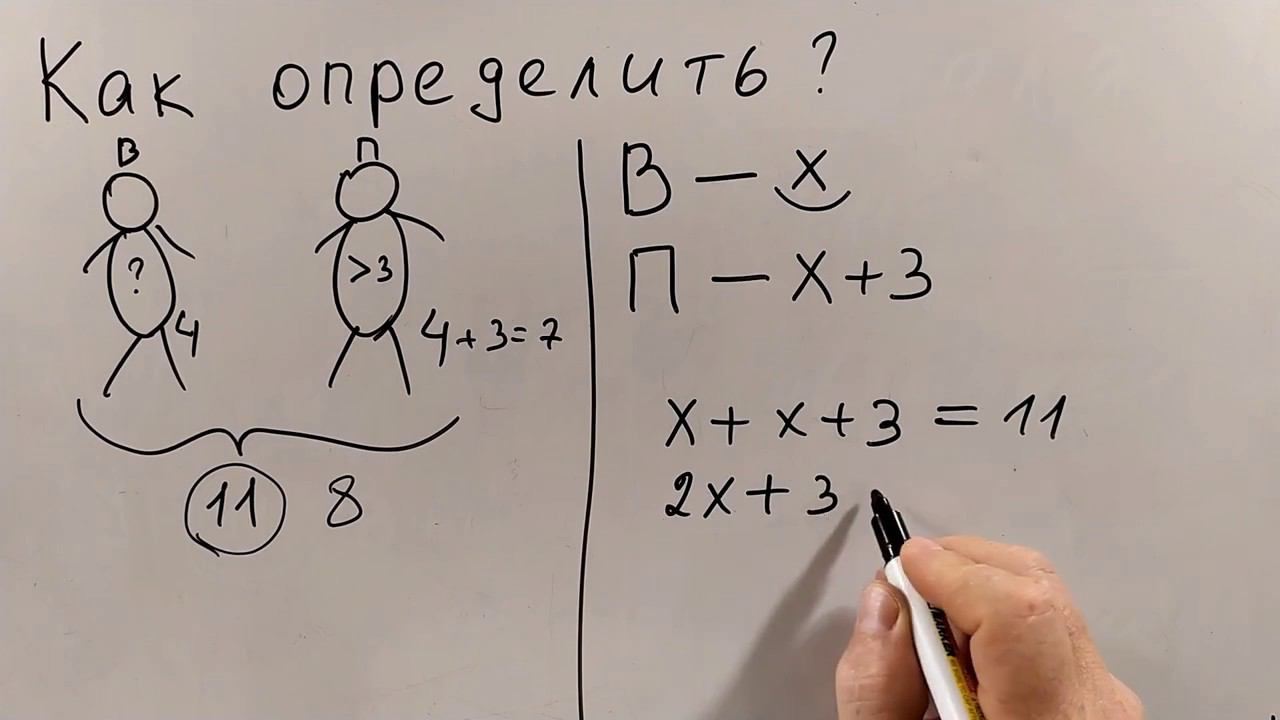 Как определить?
В П
? >3
4 4+3=7
11 8
В — х
П — х+3
х+х+3=11
2х+3